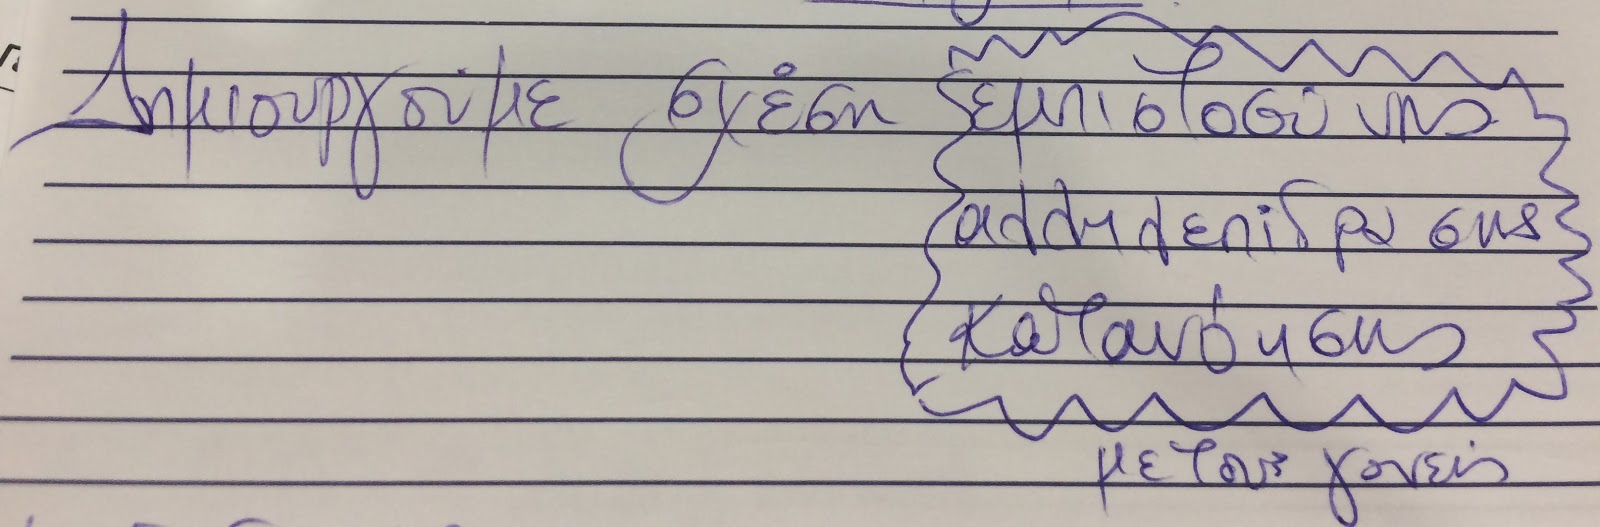 Δημιουργούμε σχέση εμπιστοσύνης
αλληλεπίδρασης
κατανόησης
με τους γονείς